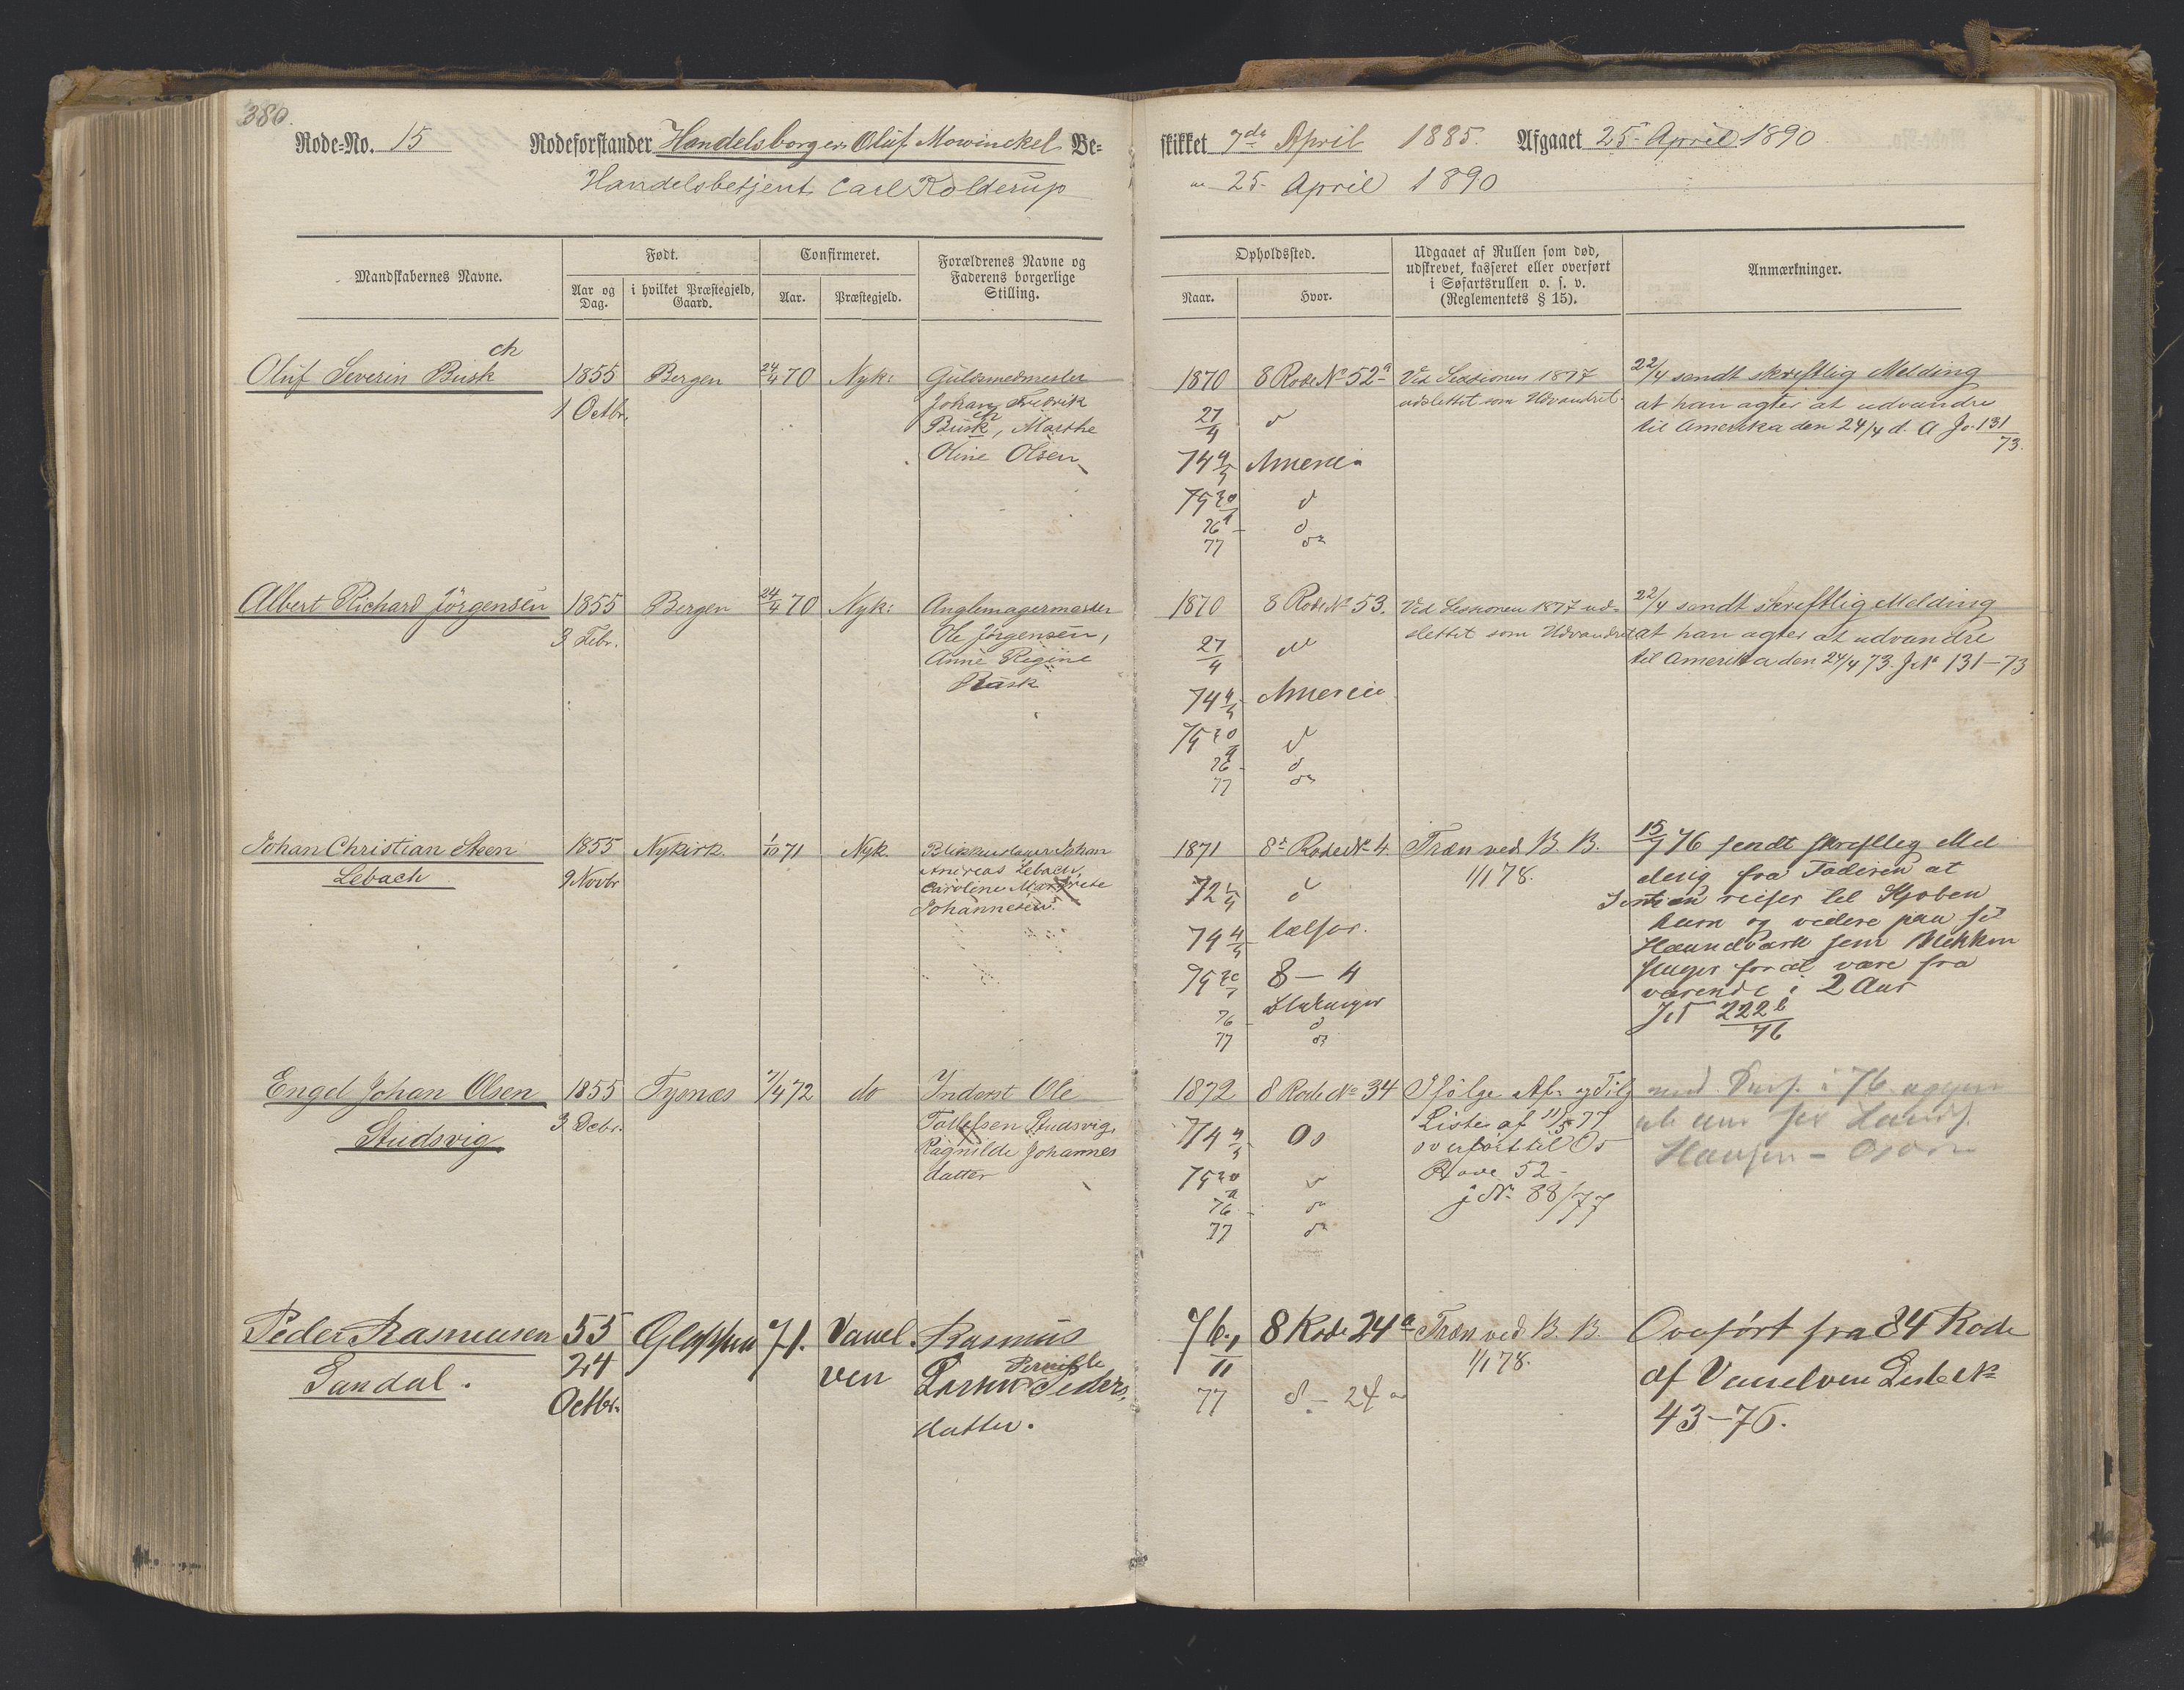 380.
Rode=No. 15 Rodeforstander Handelsborger Oluf Mowinckel Be=
skikket 7de April 1885. Afgaaet 25 April 1890
Handelsbetjent Carl Rolderup
25 April 1890
Mandskabernes Navne.
Født.
Aar og Dag.
i hvilket Præstegjeld, Gaard.
Confirmeret.
Aar.
Præstegjeld.
Forældrenes Navne og
Faderens borgerlige
Stilling.
Opholdssted.
Naar.
Hvor.
Udgaaet af Rullen som død,
udskrevet, kasseret eller overført
i Søfartsrullen o. s. v.
(Reglementets § 15).
Anmærkninger.
ch
Oluf Severin Busk
1855
1 Octbr.
Bergen
24/4 70
Nyk:
Guldsmedmester
Johan Fredrik
ch
Busk, Marthe
Oline Olsen
1870 8 Rode No 52a
27/4
74 4/5 America
75 20/4
76
77 do
Ved Sessionen 1877
udslettet som Udvandret.
22/4 sendt skriftlig Melding
at han agter at udvandre
til Amerika den 24/4 d. A Jo. 131/73.
Albert Richard Jörgensen
1855
3 Febr.
Bergen
24/4 70
Nyk:
Ole Jörgensen,
Anne Regine
Rask
1870 8 Rode No 53.
27/4
74 4/5 America
75 20/4
76
77 do
Ved Sessionen 1877 ud=
slettet som Udvandret
22/4 sendt skriftlig Melding
at han agter at udvandre
til Amerika den 24/4 73. J No 131-73
Johan Christian Steen
Lebach
1855
9 Novbr
Nykirk.
1/10 71
Nyk.
Blikkenslager Johan
Andreas Lebach,
Caroline Margrete
Johannesen.
1871 8de Rode No 4.
72
74 4/5
75 8 - 4
76
77 do
Træn ved B. B.
1/1 78.
15/7 76 sendt skriftlig Mel
ding fra Faderen at
Sønnen reiser til Kjøben
havn og videre paa sit
Haandværk som Blikken
slager for at være fra
værende i 2 Aar
222 b/76
Engel Johan Olsen
Studsvig
1855
3 Debr.
Tysnæs
7/4 72
do
Inderst Ole
Tollefsen Studsvig,
Ragnilde Johannes
datter
1872 8 Rode No 34
74 4/5 Os
75 20/4
76 do
77 do
Ifølge Af- og Tilg
Liste af 11/5 77
overført til Os
Rode 52-
j No. 88/77
Peder Rasmussen
Sandal.
55
24
Octbr.
Gloppen
71.
Vanel
ven
Rasmus
Pernille
Larsen Peders
datter.
76. 1/11 8 Rode 24a
77 8 - 24
Træn ved B. B.
1/1 78.
Overført fra 84 Rode
af Vanelven Liste No
43-76.